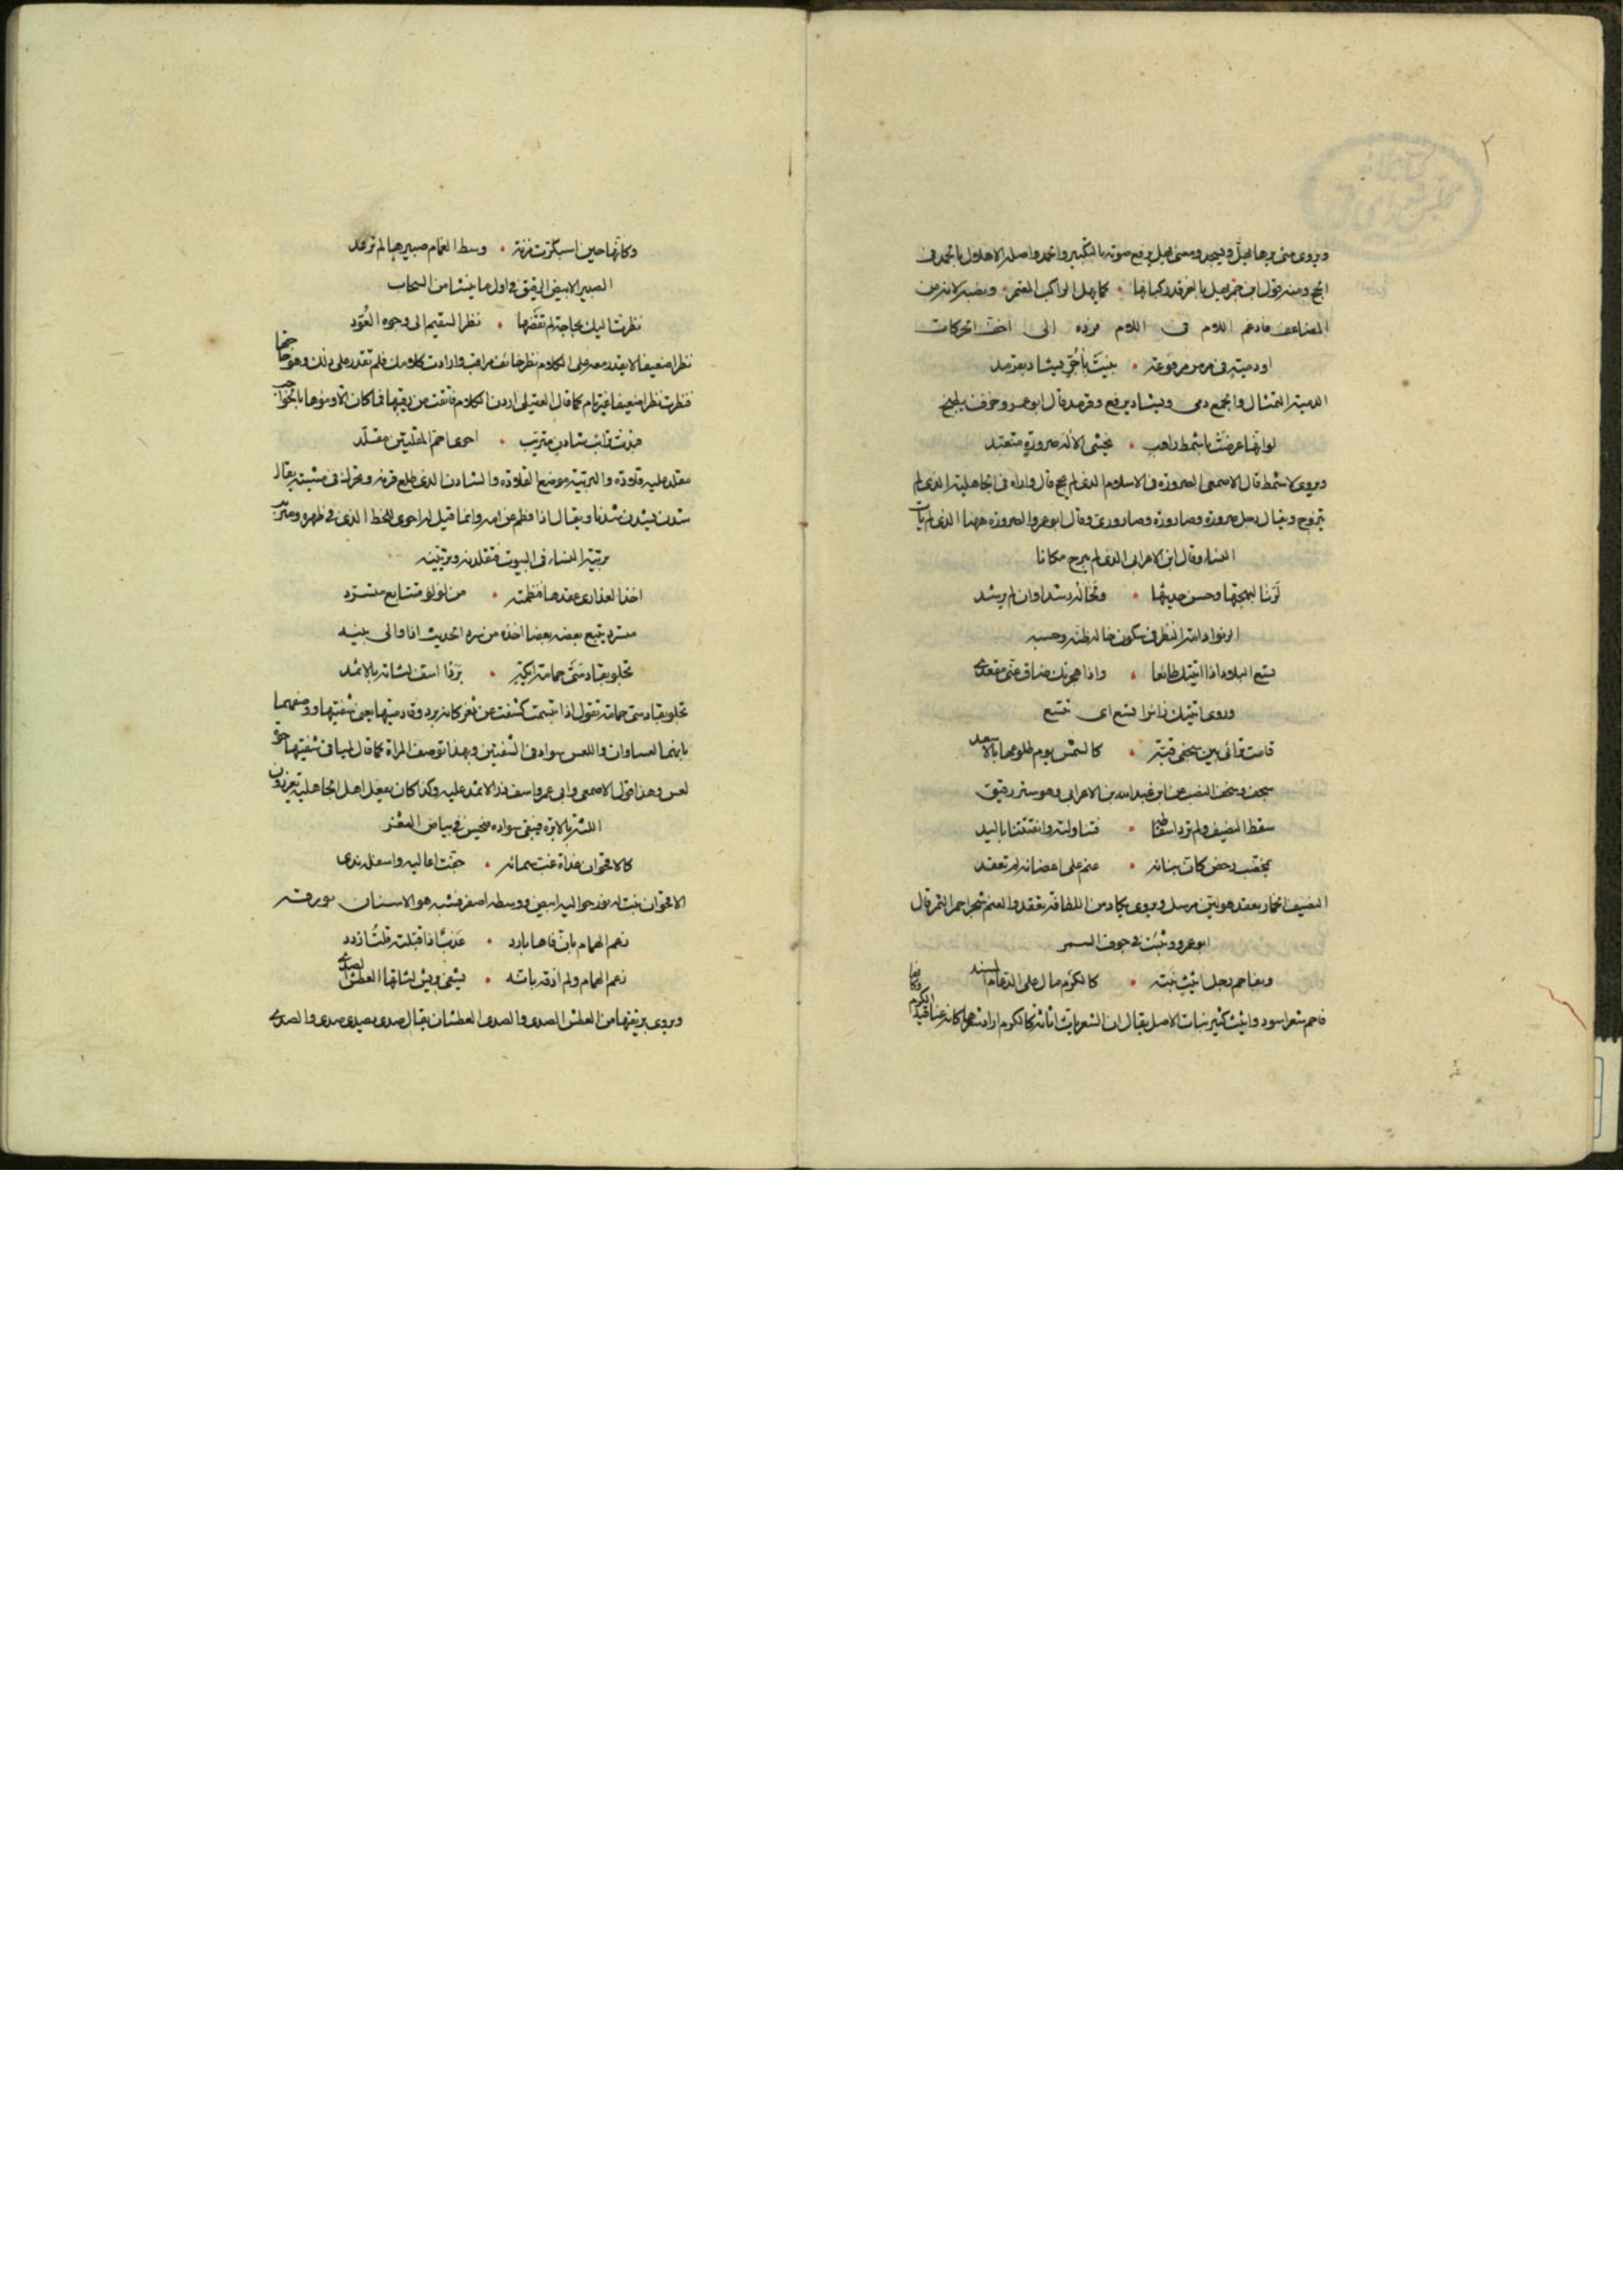 ٢
ويروى متى يرها يهل ويسجد ومعنى يهل يرفع صوته بالتكبير والحمد واصله الاهلال بالحمد في
الحج ومنه قول ابن احمر يهل بالفرقد ركبانها • كما يهل الراكب المعتمر • ونصبه لانه من
المضاعف فادغم اللام فى اللام فرده الى اخف الحركات
او دمية فى مرمر مرفوعة • بنيت بآجر يشاد بقرمد
الدمية التمثال والجمع دمى ويشاد يرفع وقرمد قال ابوعمرو خزف يطبخ
لو انها عرضت باشمط راهب • يخشى الاله صرورة متعبد
ويروى لاشمط قال الاصمعى الصرورة فى الاسلام الذى لم يحج قال واراه فى الجاهلية الذى لم
يتزوج ويقال رجل صرورة وصارورة وصارورى وقال ابوعمرو الصرورة ههنا الذى لم يات
النساء وقال ابن الاعرابى الذى لم يبرح مكانا
لرنا لبهجتها وحسن حديثها • ولخاله رشدا وان لم يرشد
الرنو ادامة النظر فى سكون خاله ظنه وحسبه
يسع البلاد اذا اتيتك طائعا • واذا هجرتك ضاق عنى مقعدى
وروى اتيتك زائرا فتسع اى تتسع
قامت ترائى بين سجفى قبة • كالشمس يوم طلوعها بالاسعد
سجف وسجف النصب عن ابن عبدالله بن الاعرابى وهو ستر رقيق
سقط النصيف ولم ترد اسقاطه • فتناولته واتقتنا باليد
بمخضب رخص كان بنانه • عنم على اغصانه لم تعقد
النصيف الخمار يعقد هو لين مرسل ويروى يكاد من اللطافة يعقد والعنم شجر احمر الثمر قال
ابوعمرو وينبت فى جوف السمر
وبفاحم رجل اثيث نبته • كالكرم مال على الدعام المسند
فاحم شعر اسود واثيث كثير نبات الاصل يقال ان الشعر ياث اثاثة كالكرم اراد شعرها كانه عناقيد الكرم
وكانها حين اسبكرت مزنة • وسط الغمام صبيرها لم ترعد
الصبير الابيض الرقيق فى اول ما ينشا من السحاب
نظرت اليك بحاجة لم تقضها • نظر السقيم الى وجوه العود
نظرا ضعيفا لا يقدر معه على الكلام نظر خائف مراقب وارادت كلامك فلم تقدر على ذلك وهو حاجتها
فنظرت نظرا ضعيفا غير تام كما قال العقيلى اردن الكلام فاتقت من رقيبها فما كان الا ومؤها بالحواجب
جزت ترائب شادن متربب • احوى احم المقلتين مقلد
مقلد عليه قلادة والتربية موضع القلادة والشادن الذى طلع قرنه وتحرك فى مشيته يقال
شدن يشدن شدنا ويقال اذا فطم عن امه وانما قيل له احوى للخط الذى فى ظهره ومتربب
تربيه النساء فى البيوت فتقلدنه وتزينه
اخذ العذارى عقدها فنظمنه • من لولو متتابع متسرد
متسرد يتبع بعضه بعضا اخذه من سرد الحديث اذا والى بينه
تجلو بقادمتى حمامة ايكة • بردا اسف لثاته بالاثمد
تجلو بقادمتى حمامة تقول اذا تبسمت كشفت عن ثغر كانه برد وقادمتيها يعنى شفتيها ووصفهما
بانهما لعساوان واللعس سواد فى الشفتين وبهذا توصف المراة كما قال لمياء فى شفتيها حوة
لعس وهذا قول الاصمعى وابى عمرو اسف ذر الاثمد عليه وكذا كان يفعل اهل الجاهلية يغرزون
اللثة بالابرة فيبقى سواده فيحسن فى بياض الثغر
كالاقحوان غداة غب سمائه • جفت اعاليه واسفله ندى
الاقحوان نبت له نور حواليه ابيض ووسطه اصفر فشبه هو الاسنان
زعم الهمام بان فاها بارد • عذب اذا قبلته قلت ازدد
زعم الهمام ولم اذقه بانه • يشفى بريا لثاتها العطش الصدى
ويروى بريقتها من العطش الصدى والصدى العطشان يقال صدى يصدى صدى والصدى